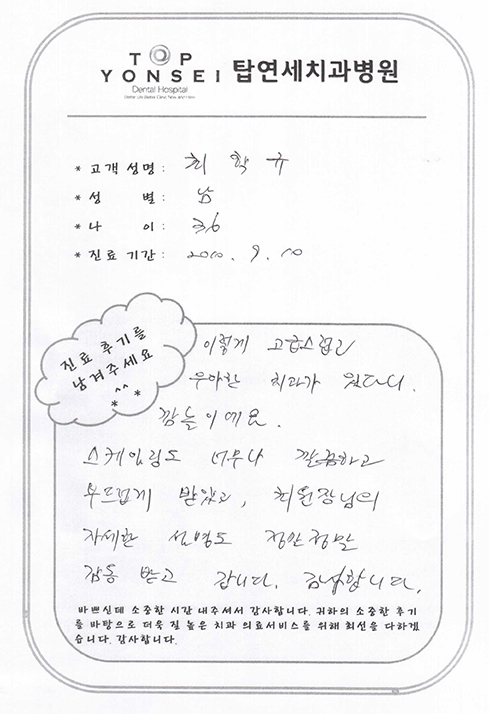 TOP
YONSEI 탑연세치과병원
Dental Hospital
* 고객 성명 : 최 학 규
* 성 별 : 남
* 나 이 : 36
* 진료 기간 : 2010. 9. 10
진료 후기를
남겨주세요
^^
* *
이렇게 고급스럽고
우아한 치과가 있다니.
깜놀이에요.
스케일링도 너무나 깔끔하고
부드럽게 받았고, 최원장님의
자세한 설명도 정말정말
감동 받고 갑니다. 감사합니다.
바쁘신데 소중한 시간 내주셔서 감사합니다. 귀하의 소중한 후기
를 바탕으로 더욱 질 높은 치과 의료서비스를 위해 최선을 다하겠
습니다. 감사합니다.